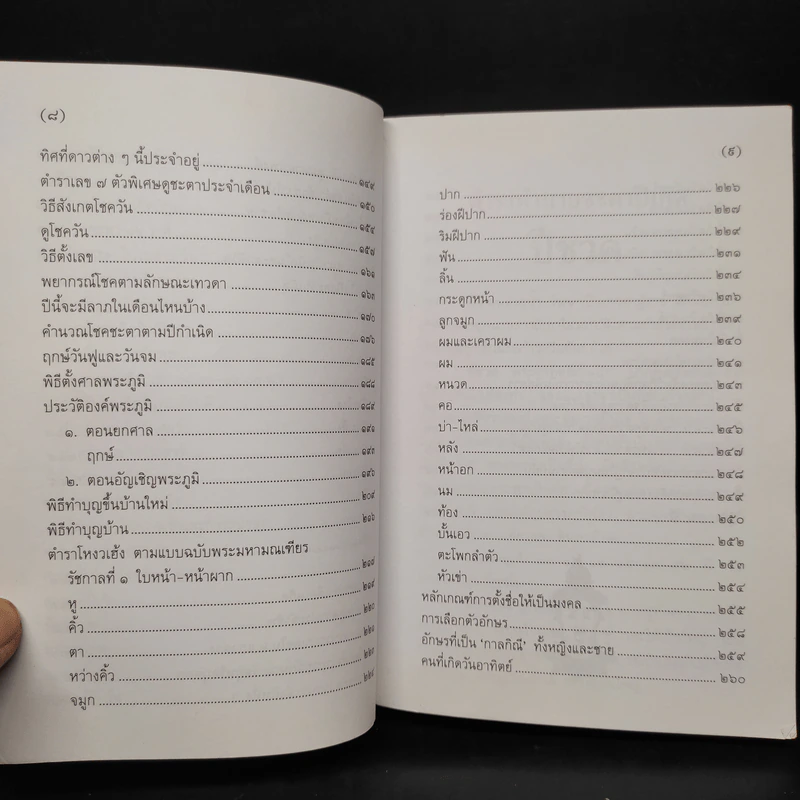 (๘)
ทิศที่ดาวต่าง ๆ นี้ประจำอยู่ ๑๔๙
ตำราเลข ๗ ตัวพิเศษดูชะตาประจำเดือน ๑๕๐
วิธีสังเกตโชควัน ๑๕๔
ดูโชควัน ๑๕๗
วิธีตั้งเลข ๑๖๑
พยากรณ์โชคตามลักษณะเทวดา ๑๖๙
ปีนี้จะมีลาภในเดือนไหนบ้าง ๑๗๐
คำนวณโชคชะตาตามปีกำเนิด ๑๗๖
ฤกษ์วันฟูและวันจม ๑๘๕
พิธีตั้งศาลพระภูมิ ๑๘๘
ประวัติองค์พระภูมิ ๑๘๙
๑. ตอนยกศาล ๑๙๑
ฤกษ์ ๑๙๓
๒. ตอนอัญเชิญพระภูมิ ๑๙๖
พิธีทำบุญขึ้นบ้านใหม่ ๒๐๙
พิธีทำบุญบ้าน ๒๑๖
ตำราโหงวเฮ้ง ตามแบบฉบับพระมหามณเฑียร
รัชกาลที่ ๑ ใบหน้า-หน้าผาก ๒๑๘
หู ๒๑๙
คิ้ว ๒๒๐
ตา ๒๒๑
หว่างคิ้ว ๒๒๓
จมูก ๒๒๔
(๙)
ปาก ๒๒๖
ร่องฝีปาก ๒๒๗
ริมฝีปาก ๒๒๙
ฟัน ๒๓๑
ลิ้น ๒๓๔
กระดูกหน้า ๒๓๖
ลูกจมูก ๒๓๙
ผมและเคราผม ๒๔๐
ผม ๒๔๑
หนวด ๒๔๓
คอ ๒๔๕
บ่า-ไหล่ ๒๔๖
หลัง ๒๔๗
หน้าอก ๒๔๘
นม ๒๔๙
ท้อง ๒๕๐
บั้นเอว ๒๕๒
ตะโพกลำตัว ๒๕๓
หัวเข่า ๒๕๔
หลักเกณฑ์การตั้งชื่อให้เป็นมงคล ๒๕๕
การเลือกตัวอักษร ๒๕๘
อักษรที่เป็น 'กาลกิณี' ทั้งหญิงและชาย ๒๕๙
คนที่เกิดวันอาทิตย์ ๒๖๐